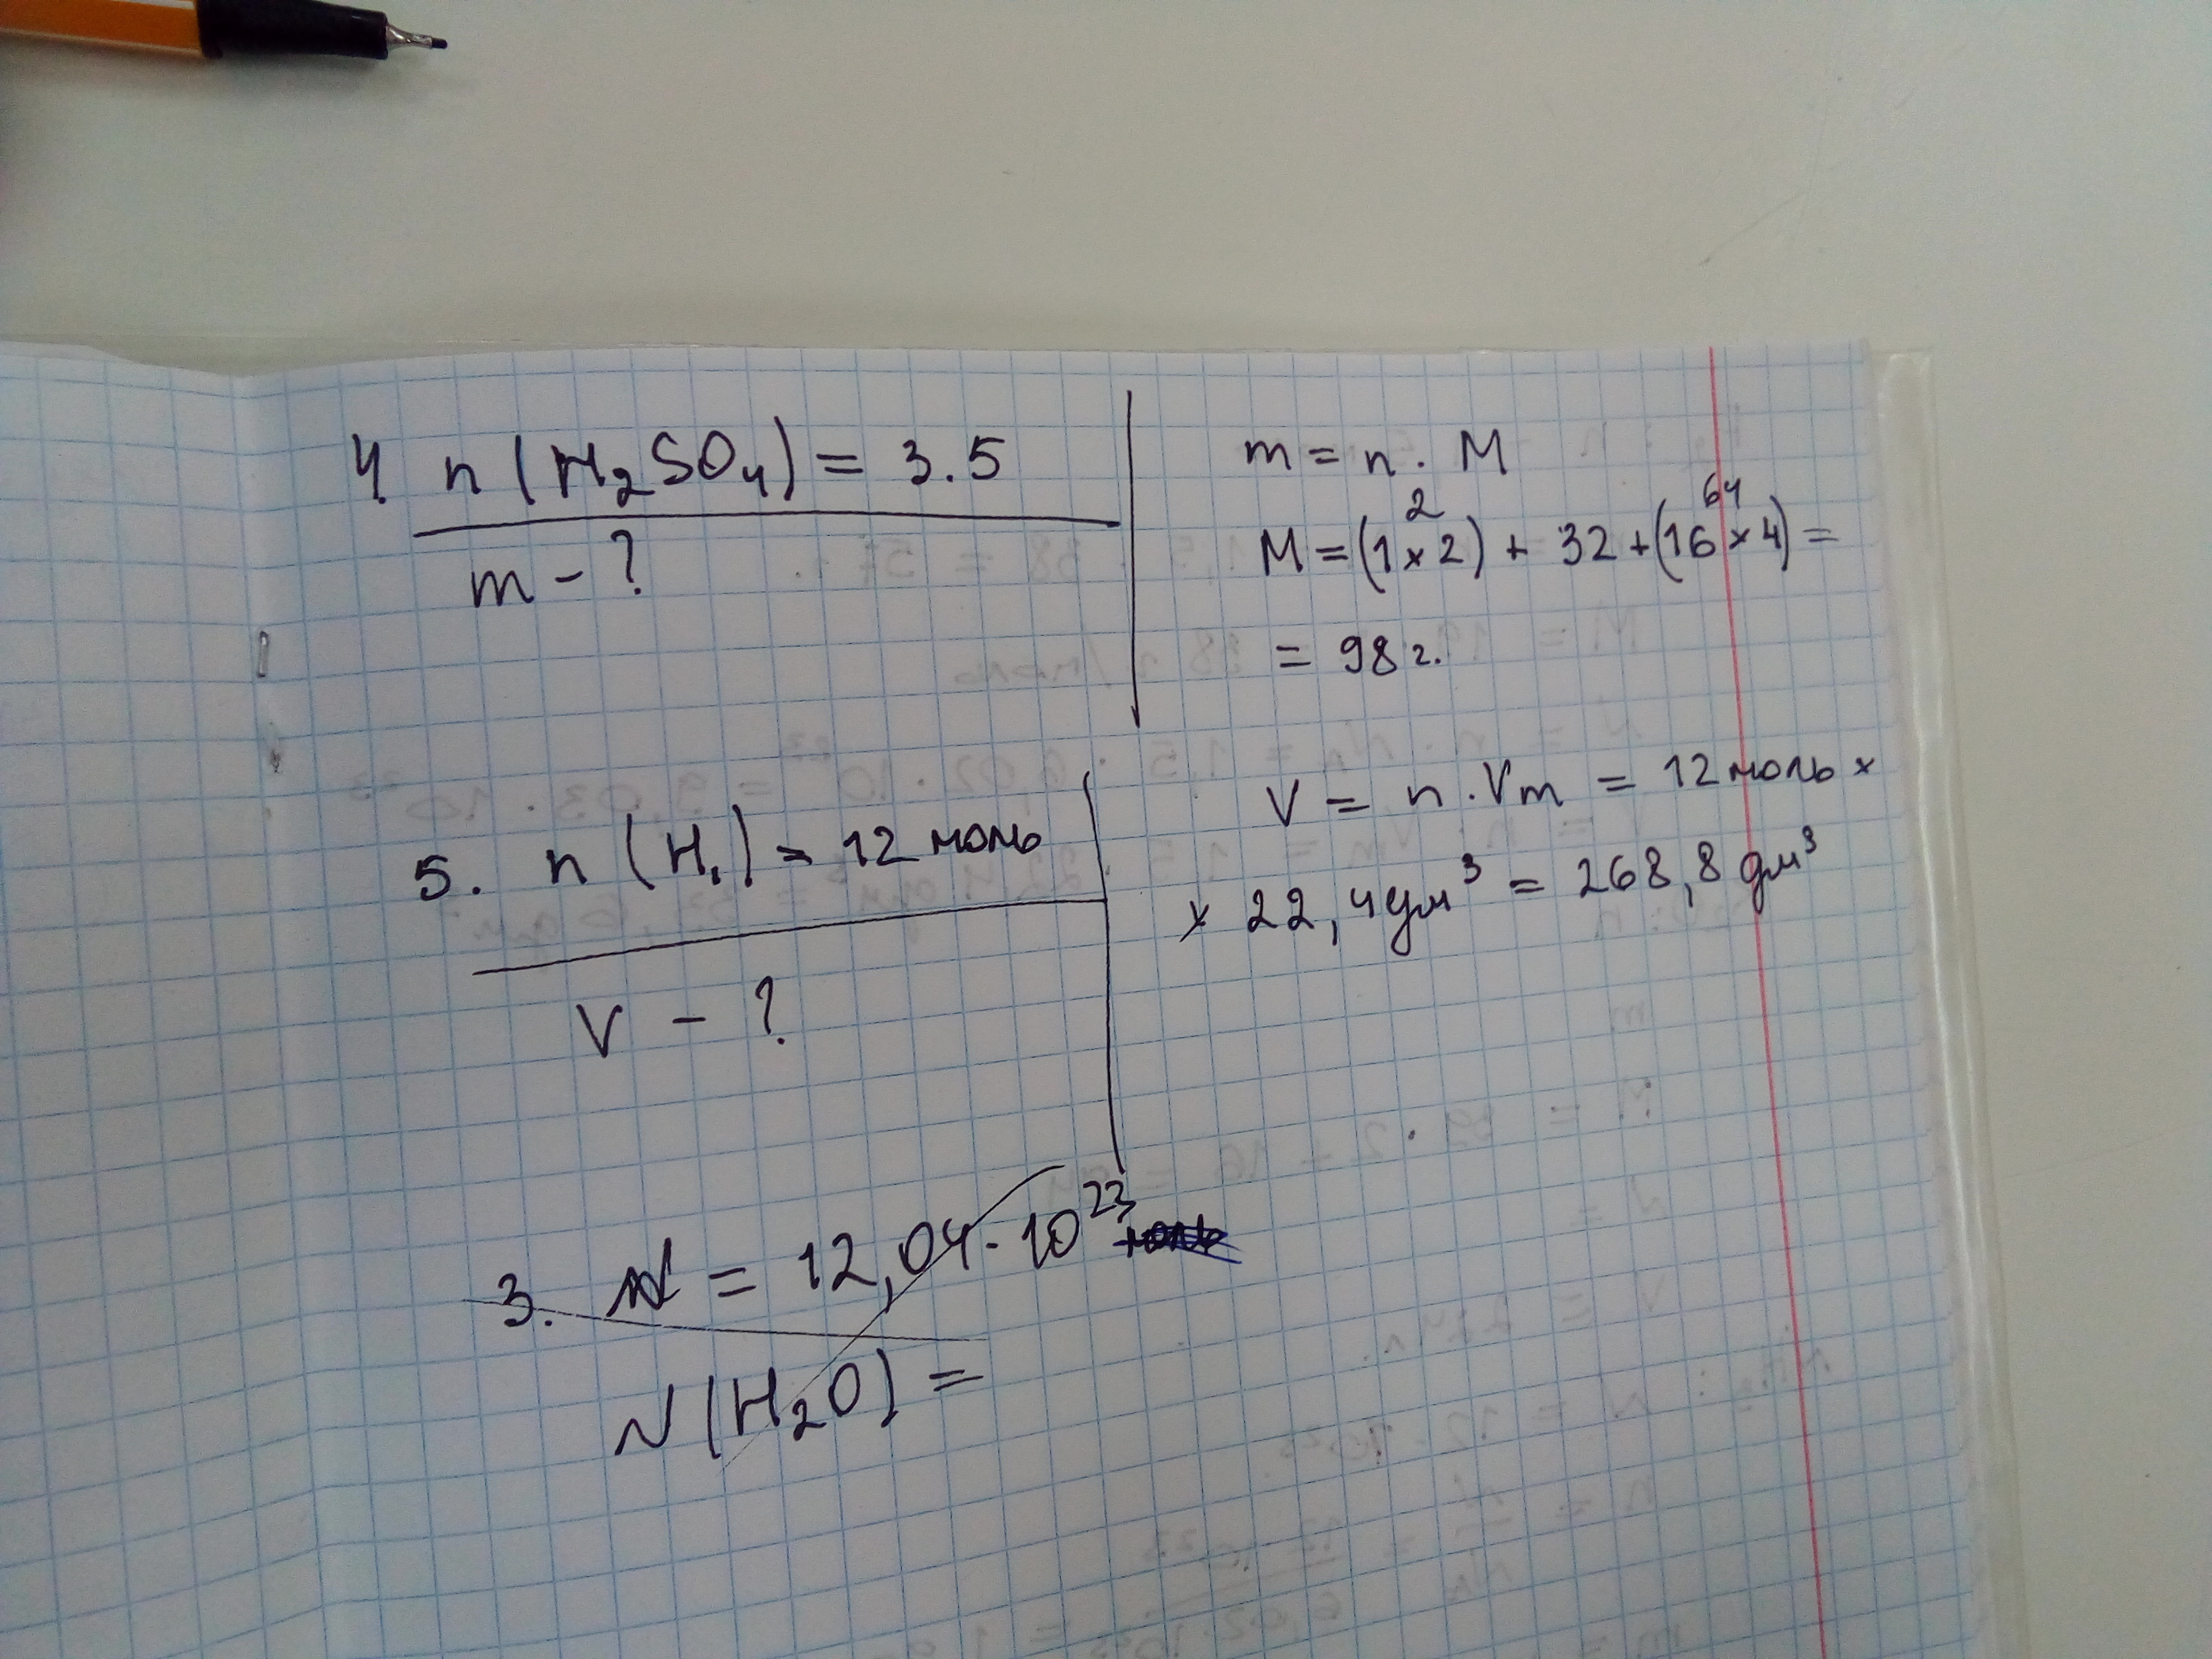 4. n (H₂SO₄) = 3.5
m - ?
m = n . M
2 64
M = (1 × 2) + 32 + (16 × 4) =
= 98 г.
5. n (H₂) = 12 моль
V - ?
V = n . Vm = 12 моль ×
× 22,4 дм³ = 268,8 дм³
3. = 12,04 · 10²³
N (H₂O) =